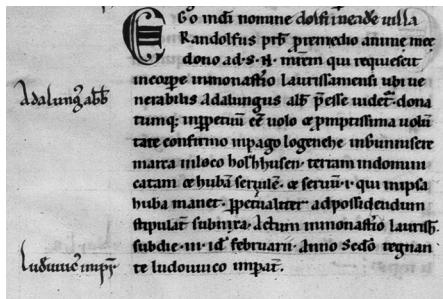 EGo in dei nomine dolfi in eadē uilla
Randolfus prb̄ p remedio anime mee
dono ad .S. N. m̄rem qui requiescit
in corpore in monast̄io laurissamensi ubi ue
Adalung9 abb̄
nerabilis Adalungus abb̄ p̄esse uidet̄. dona
tumq; in p̄petuū eē uolo & p̄mptissima uolun
tate confirmo in pago logenehe in buninsere
marca in loco holzhusen. terram indomini
catam & hubā seruilē. & seruū .i. qui in ipsa
huba manet. p̄petualit̄ ad possidendum
stipulat̄ subnixa. Actum in monast̄io laurish̄.
sub die .iii. id' februarii. Anno sc̄do regnan
Ludiuuic9 imp̄r
te ludouuico impat̄.